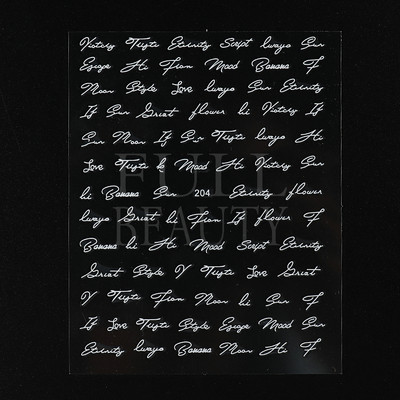 Victory Twist Eternity Script lwayo Sun
Escape Hi From Mood Banana F
Moon Style Love lwayo Sun Eternity
If Sun Great flower hi Victory If
Sun Moon If Sun Twist lwayo Hi
Love Twist hi Mood Hi Victory Sun
hi Banana Sun 204 Eternity flower
lwayo Great hi From If flower F
Banana hi Hi Mood Script Eternity
Great Style V Twist Love Great
V Twist From Moon hi Sun F
If Love Twist Style Escape Mood Sun
Eternity lwayo Banana Moon Hi F
FULL
BEAUTY